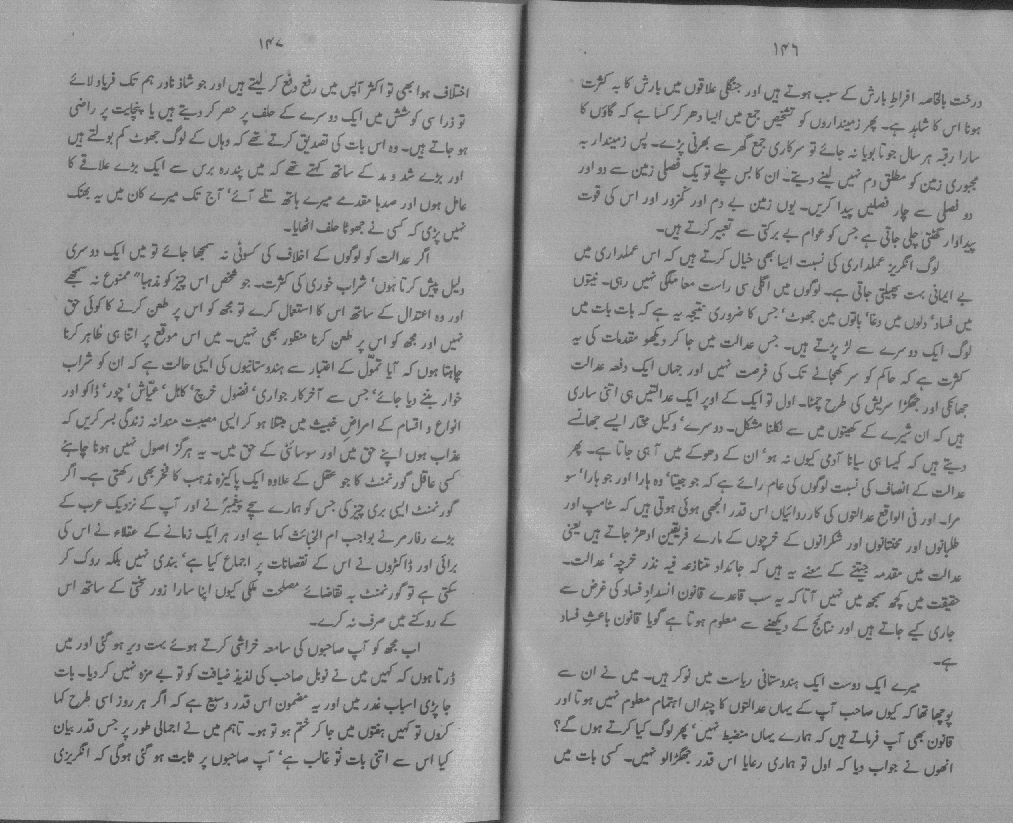 ۱۴۶
درخت بالخاصہ افراطِ بارش کے سبب ہوتے ہیں اور جنگلی علاقوں میں بارش کا بہ کثرت
ہونا اس کا شاہد ہے۔ پھر زمینداروں کو تشخیص جمع میں ایسا دھر کر کسا ہے کہ گاؤں کا
سارا رقبہ ہر سال جوتا بویا نہ جائے تو سرکاری جمع گھر سے بھرنی پڑے۔ پس زمیندار بہ
مجبوری زمین کو مطلق دم نہیں لینے دیتے۔ ان کا بس چلے تو یک فصلی زمین سے دو اور
دو فصلی سے چار فصلیں پیدا کریں۔ یوں زمین بے دم اور کمزور اور اس کی قوت
پیداوار گھٹتی چلی جاتی ہے جس کو عوام بے برکتی سے تعبیر کرتے ہیں۔
لوگ انگریز عملداری کی نسبت ایسا بھی خیال کرتے ہیں کہ اس عملداری میں
بے ایمانی بہت پھیلتی جاتی ہے۔ لوگوں میں اگلی سی راست معاملگی نہیں رہی۔ نیتوں
میں فساد‘ دلوں میں دغا‘ باتوں میں جھوٹ‘ جس کا ضروری نتیجہ یہ ہے کہ بات بات میں
لوگ ایک دوسرے سے لڑ پڑتے ہیں۔ جس عدالت میں جا کر دیکھو مقدمات کی یہ
کثرت ہے کہ حاکم کو سر کھجانے تک کی فرصت نہیں اور جہاں ایک دفعہ عدالت
جھانکی اور جھگڑا سریش کی طرح چمٹا۔ اول تو ایک کے اوپر ایک عدالتیں ہی اتنی ساری
ہیں کہ ان شیرے کے کھیتوں میں سے نکلنا مشکل۔ دوسرے‘ وکیل مختار ایسے جھانسے
دیتے ہیں کہ کیسا ہی سیانا آدمی کیوں نہ ہو‘ ان کے دھوکے میں آ ہی جاتا ہے۔ پھر
عدالت کے انصاف کی نسبت لوگوں کی عام رائے ہے کہ جو جیتا‘ وہ ہارا اور جو ہارا‘ سو
مرا۔ اور فی الواقع عدالتوں کی کارروائیاں اس قدر الجھی ہوئی ہوتی ہیں کہ سٹامپ اور
طلبانوں اور محنتانوں اور شکرانوں کے خرچوں کے مارے فریقین ادھڑ جاتے ہیں یعنی
عدالت میں مقدمہ جیتنے کے معنے یہ ہیں کہ جائداد متنازعہ فیہ نذر خرچہ‘ عدالت۔
حقیقت میں کچھ سمجھ میں نہیں آتا کہ یہ سب قاعدے قانون انسدادِ فساد کی غرض سے
جاری کیے جاتے ہیں اور نتائج کے دیکھنے سے معلوم ہوتا ہے گویا قانون باعثِ فساد
ہے۔
میرے ایک دوست ایک ہندوستانی ریاست میں نوکر ہیں۔ میں نے ان سے
پوچھا تھا کہ کیوں صاحب آپ کے یہاں عدالتوں کا چنداں اہتمام معلوم نہیں ہوتا اور
قانون بھی آپ فرماتے ہیں کہ ہمارے یہاں منضبط نہیں‘ پھر لوگ کیا کرتے ہوں گے؟
انھوں نے جواب دیا کہ اول تو ہماری رعایا اس قدر جھگڑالو نہیں۔ کسی بات میں
۱۴۷
اختلاف ہوا بھی تو اکثر آپس میں رفع دفع کر لیتے ہیں اور جو شاذ نادر ہم تک فریاد لائے
تو ذرا سی کوشش میں ایک دوسرے کے حلف پر حصر کر دیتے ہیں یا پنچایت پر راضی
ہو جاتے ہیں۔ وہ اس بات کی تصدیق کرتے تھے کہ وہاں کے لوگ جھوٹ کم بولتے ہیں
اور بڑے شد و مد کے ساتھ کہتے تھے کہ میں پندرہ برس سے ایک بڑے علاقے کا
عامل ہوں اور صدہا مقدمے میرے ہاتھ تلے آئے‘ آج تک میرے کان میں یہ بھنک
نہیں پڑی کہ کسی نے جھوٹا حلف اٹھایا۔
اگر عدالت کو لوگوں کے اخلاف کی کسوٹی نہ سمجھا جائے تو میں ایک دوسری
دلیل پیش کرتا ہوں‘ شراب خوری کی کثرت۔ جو شخص اس چیز کو مذہباً ممنوع نہ سمجھے
اور وہ اعتدال کے ساتھ اس کا استعمال کرے تو مجھ کو اس پر طعن کرنے کا کوئی حق
نہیں اور مجھ کو اس پر طعن کرنا منظور بھی نہیں۔ میں اس موقع پر اتنا ہی ظاہر کرنا
چاہتا ہوں کہ آیا تموّل کے اعتبار سے ہندوستانیوں کی ایسی حالت ہے کہ ان کو شراب
خوار بننے دیا جائے‘ جس سے آخرکار جواری‘ فضول خرچ‘ کاہل‘ عیّاش‘ چور‘ ڈاکو اور
انواع و اقسام کے امراضِ خبیث میں مبتلا ہو کر ایسی مصیبت مندانہ زندگی بسر کریں کہ
عذاب ہوں اپنے حق میں اور سوسائٹی کے حق میں۔ یہ ہرگز اصول نہیں ہونا چاہئے
کسی عاقل گورنمنٹ کا جو عقل کے علاوہ ایک پاکیزہ مذہب کا فخر بھی رکھتی ہے۔ اگر
گورنمنٹ ایسی بری چیز کی جس کو ہمارے سچے پیغمبرؐ نے اور آپ کے نزدیک عرب کے
بڑے رفارمر نے بواجب ام الخبائث کہا ہے اور ہر ایک زمانے کے عقلاء نے اس کی
برائی اور ڈاکٹروں نے اس کے نقصانات پر اجماع کیا ہے‘ بندی نہیں بلکہ روک کر
سکتی ہے تو گورنمنٹ بہ تقاضائے مصلحت ملکی کیوں اپنا سارا زور سختی کے ساتھ اس
کے روکنے میں صرف نہ کرے۔
اب مجھ کو آپ صاحبوں کی سامعہ خراشی کرتے ہوئے بہت دیر ہو گئی اور میں
ڈرتا ہوں کہ کہیں میں نے نوبل صاحب کی لذیذ ضیافت کو تو بے مزہ نہیں کر دیا۔ بات
جا پڑی اسباب غدر میں اور یہ مضمون اس قدر وسیع ہے کہ اگر ہر روز اسی طرح کہا
کروں تو کہیں ہفتوں میں جا کر ختم ہو تو ہو۔ تاہم میں نے اجمالی طور پر جس قدر بیان
کیا اس سے اتنی بات تو غالب ہے‘ آپ صاحبوں پر ثابت ہو گئی ہوگی کہ انگریزی